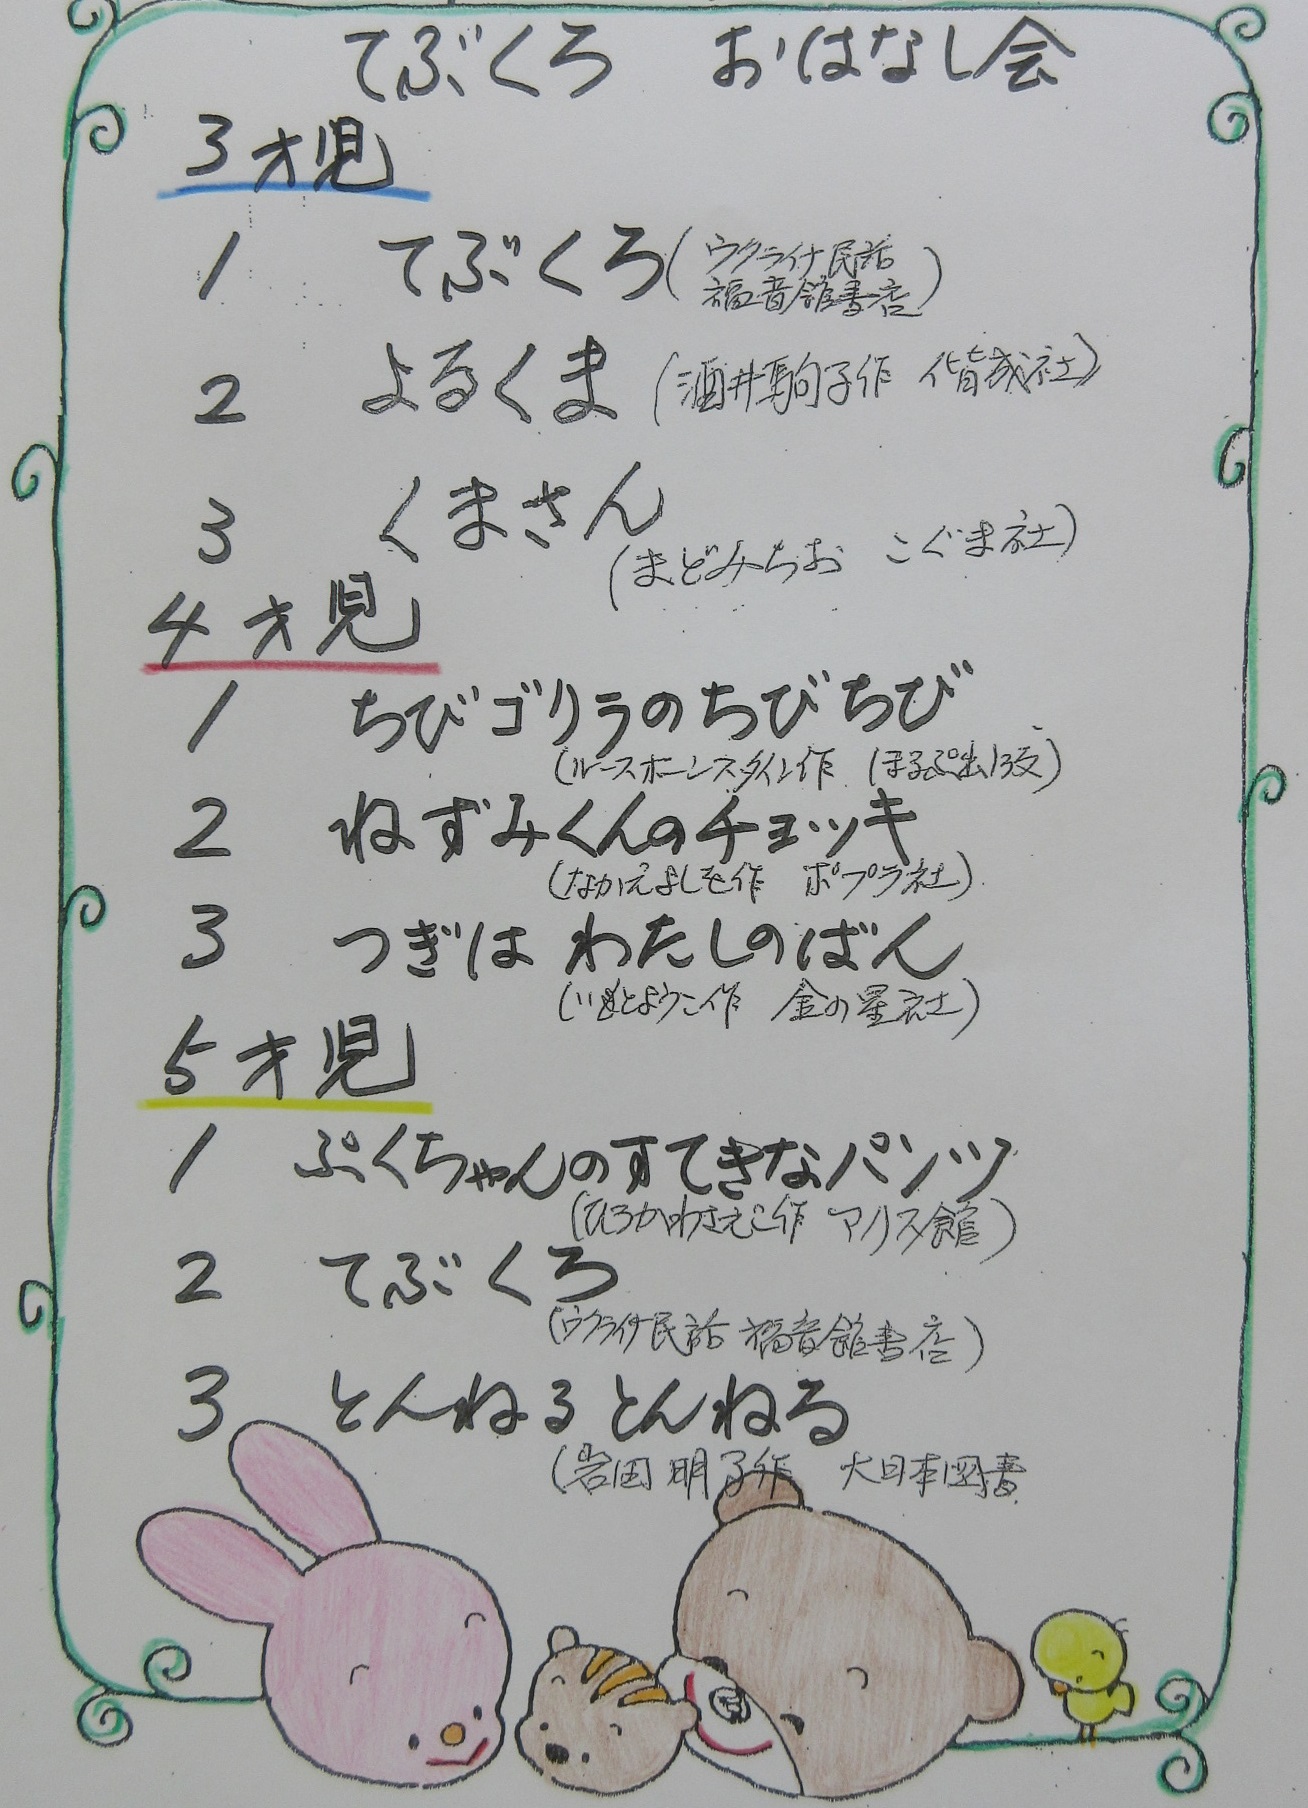 てぶくろ おはなし会
3才児
1 てぶくろ(ウクライナ民話
福音館書店)
2 よるくま (酒井駒子作 偕成社)
3 くまさん
(まどみちお こぐま社)
4才児
1 ちびゴリラのちびちび
(ルースボーンスタイン作 ほるぷ出版)
2 ねずみくんのチョッキ
(なかえよしを作 ポプラ社)
3 つぎは わたしのばん
(いもとようこ作 金の星社)
5才児
1 ぷくちゃんのすてきなパンツ
(ひろかわさえこ作 アリス館)
2 てぶくろ
(ウクライナ民話 福音館書店)
3 とんねるとんねる
(岩田明子作 大日本図書